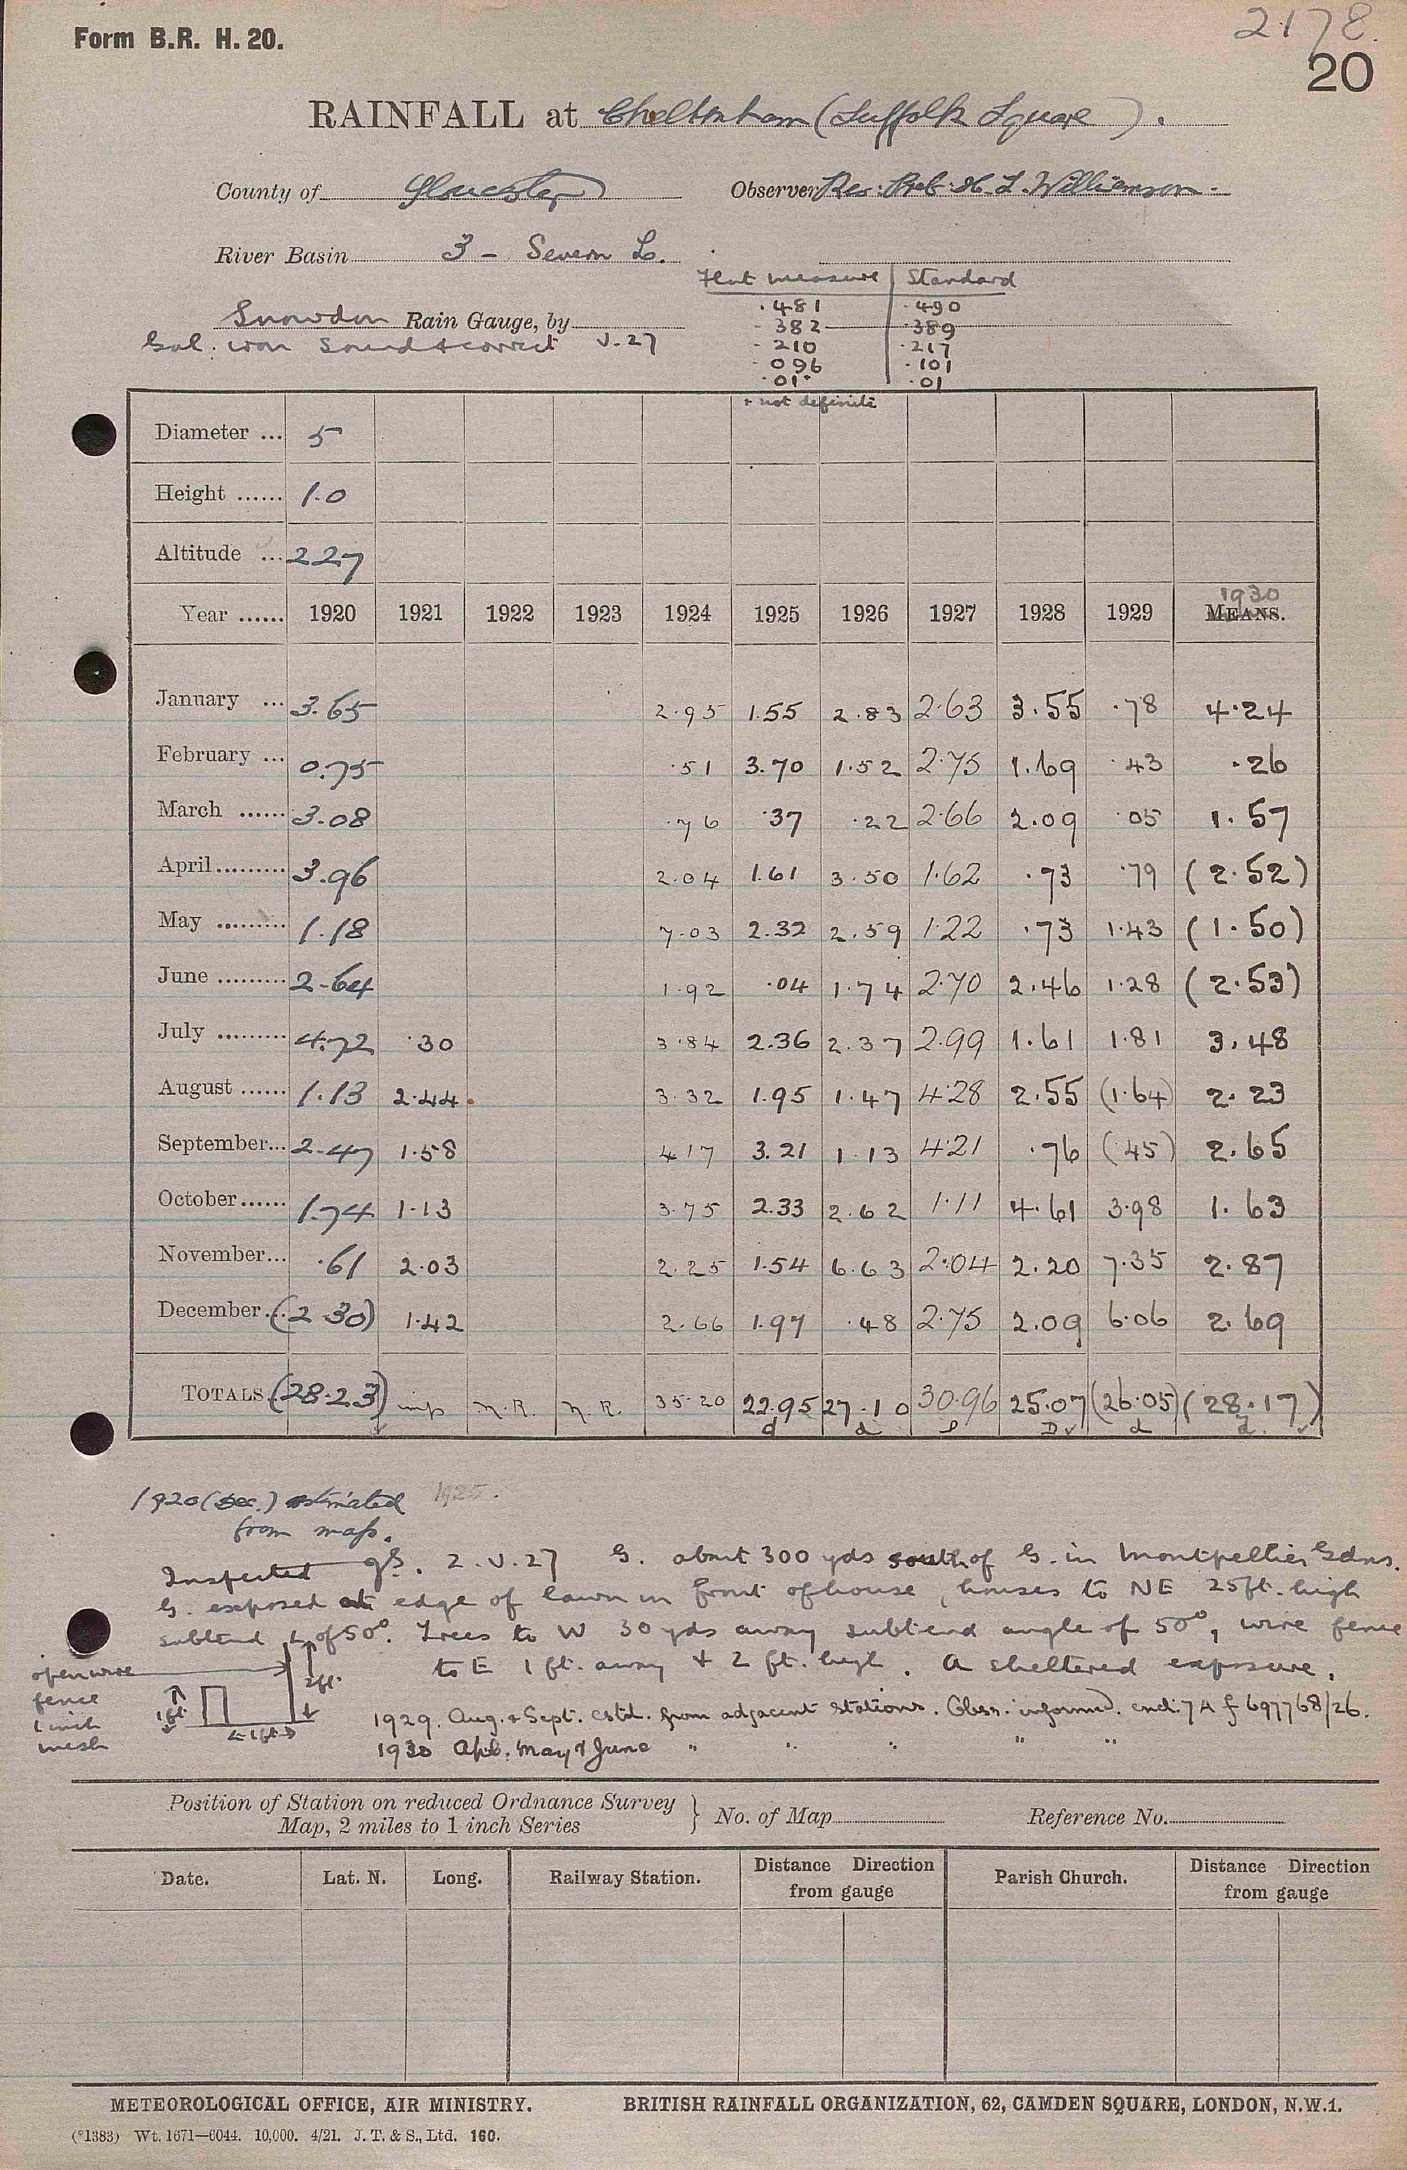 2178.
Form B.R. H. 20.
20
RAINFALL at Cheltenham (Suffolk Square).
County of Gloucester Observer Rev. Preb. H. L. Williamson.
River Basin 3 - Severn L.
Flat measure | Standard
.481 .490
.382 .389
.210 .217
.096 .101
.01+ .01
+ not definite
Snowdon Rain Gauge, by
Gal. iron sound & correct V.27
Diameter ... 5
Height ...... 1.0
Altitude ... 227
Year ...... 1920 1921 1922 1923 1924 1925 1926 1927 1928 1929 1930 MEANS.
January ... 3.65 2.95 1.55 2.83 2.63 3.55 .78 4.24
February ... 0.75 .51 3.70 1.52 2.75 1.69 .43 .26
March ...... 3.08 .76 .37 .22 2.66 2.09 .05 1.57
April ......... 3.96 2.04 1.61 3.50 1.62 .73 .79 (2.52)
May ......... 1.18 7.03 2.32 2.59 1.22 .73 1.43 (1.50)
June ......... 2.64 1.92 .04 1.74 2.70 2.46 1.28 (2.53)
July ......... 4.72 .30 3.84 2.36 2.37 2.99 1.61 1.81 3.48
August ...... 1.13 2.44 3.32 1.95 1.47 4.28 2.55 (1.64) 2.23
September... 2.47 1.58 4.17 3.21 1.13 4.21 .76 (.45) 2.65
October...... 1.74 1.13 3.75 2.33 2.62 1.11 4.61 3.98 1.63
November... .61 2.03 2.25 1.54 6.63 2.04 2.20 7.35 2.87
December... (2.30) 1.42 2.66 1.97 .48 2.75 2.09 6.06 2.69
TOTALS. (28.23) imp N.R. N.R. 35.20 22.95 27.10 30.96 25.07 (26.05) (28.17)
1920 (Dec.) estimated 1925.
from maps.
Inspected 2.V.27 G. about 300 yds south of G. in Montpellier Gdns.
G. exposed at edge of lawn in front of house, houses to NE 25ft. high
subtend ∠ of 50°. Trees to W 30 yds away subtend angle of 50°, wire fence
to E 1 ft. away & 2 ft. high. A sheltered exposure.
open wire
fence
1 inch
mesh
1ft
2ft.
1ft
1929. Aug. & Sept. estd. from adjacent stations. Obsr. informed. encl. 7A f 697768/26.
1930 Apl. May & June " " " " "
Position of Station on reduced Ordnance Survey
Map, 2 miles to 1 inch Series } No. of Map Reference No.
Date. Lat. N. Long. Railway Station. Distance Direction from gauge Parish Church. Distance Direction from gauge
METEOROLOGICAL OFFICE, AIR MINISTRY. BRITISH RAINFALL ORGANIZATION, 62, CAMDEN SQUARE, LONDON, N.W.1.
(*1383) Wt. 1671—6044. 10,000. 4/21. J. T. & S., Ltd. 160.